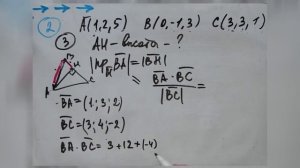 ② A(1,2,5) B(0,-1,3) C(3,3,1)
③ AH - высота - ?
A H
|пр BA| = |BH|
BC
BA · BC
=
|BC|
BA = (1; 3; 2)
BC = (3; 4; -2)
BA · BC = 3 + 12 + (-4)